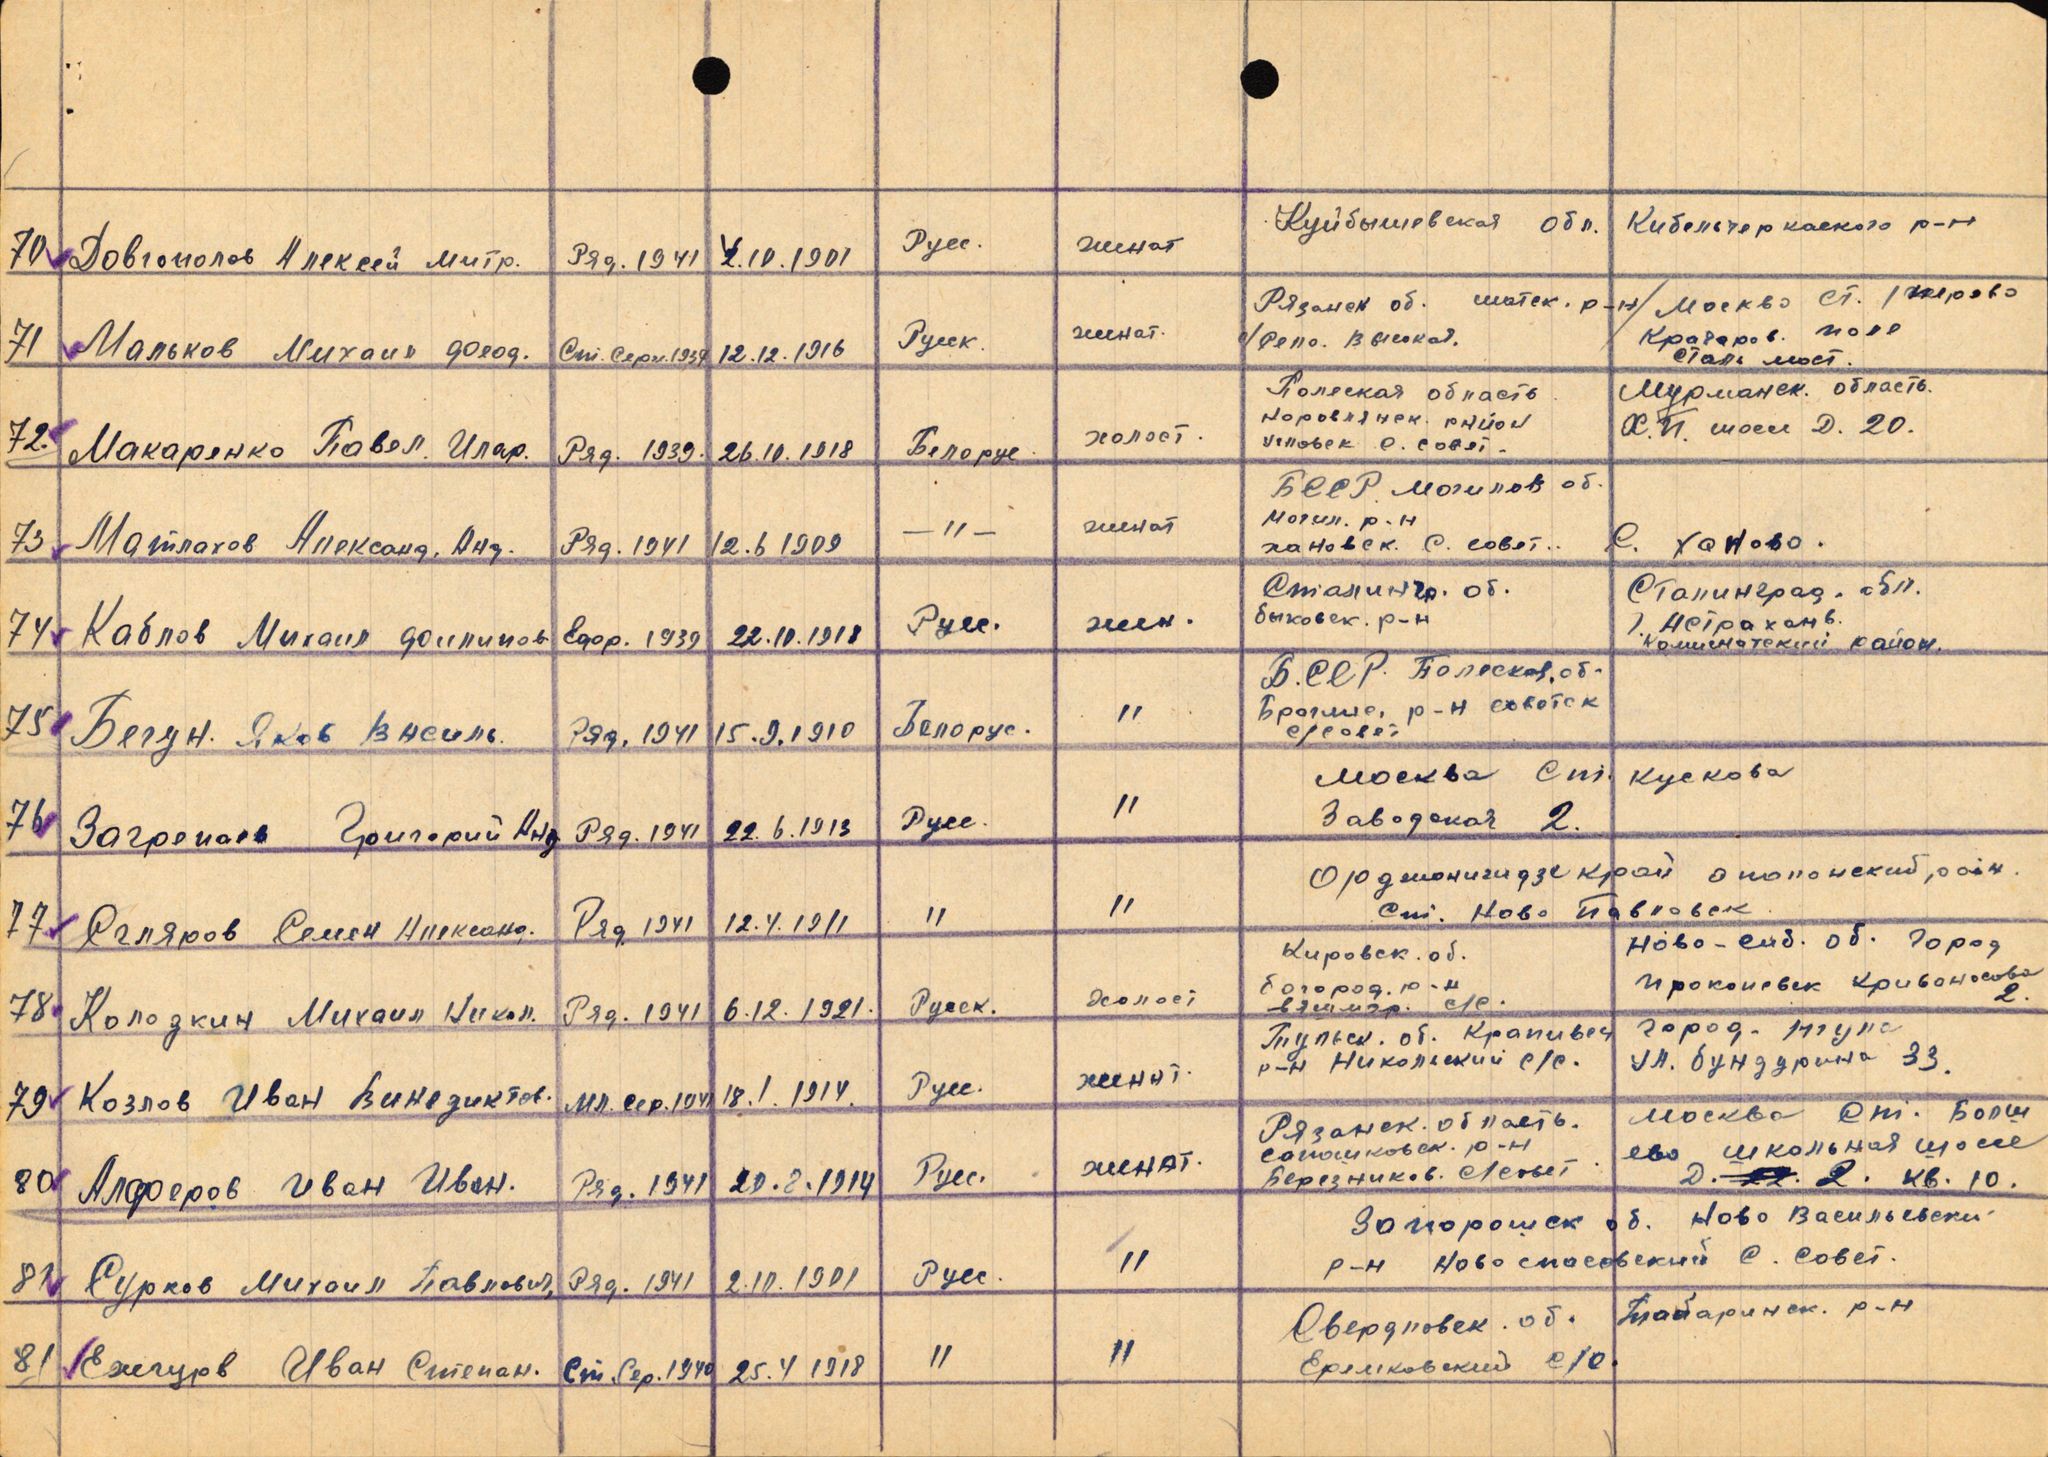 70 Довгополов Алексей Митр. Ряд. 1941 2.10.1901 Русс. женат Куйбышевская обл. Кибельчеркаского р-н
71 Мальков Михаил Феод. Ст. Серж. 1939 12.12.1916 Русск. женат. Рязанск об. шатск. р-н Москва ст.
Крачаров. поле
Сталь мост.
72. Макаренко Павел. Илар. Ряд. 1939. 26.10.1918 Белорус холост. Полеская область Мурманск. область.
норовлянск. район Х.П. шосе Д. 20.
с. совет.
73 Матлахов Александ. Анд. Ряд. 1941 12.6 1909 —"— женат БССР. Могилов об.
Могил. р-н
хановск. С. совет.. С. Ханово.
74 Каблов Михаил Филипов Ефр. 1939 22.10.1918 Русс. жен. Сталингр. об. Сталинград. обл.
быковск. р-н г. Астраханв.
район.
75 Бегун. Яков Василь. Ряд. 1941 15.9.1910 Белорус. " Б.ССР. Полесков. об.
Брагинс. р-н советск
с/совет
76 Загрепаев Григорий Анд Ряд. 1941 22.6.1913 Русс. " Москва Ст. кускова
Заводская 2.
77 Сгляров Семен Александ. Ряд 1941 12.4.1911 " " Орджоникидзе край апопонский район.
Ст. Ново Павловск
78 Колодкин Михаил Никол. Ряд. 1941 6.12.1921. Русск. Холост Кировск. об. Ново-сиб. об. город
богород. р-н Прокопевск Кривоносова
с/с. 2.
79 Козлов Иван Винедиктов. Мл. сер. 1941 18.1.1914. Русс. женат. Тульск. об. Крапивен город-
р-н Никольский с/с. ул. бундурина 33.
80 Алферов Иван Иван. Ряд. 1941 20.2.1914 Русс. женат. Рязанск. область. Москва Ст. Болш
сапожковск. р-н ево школьная шосе
Березников. с/совет Д. 2. кв. 10.
81 Сурков Михаил Павлович, Ряд. 1941 2.10.1901 Русс. " Запорожск об. Ново Васильевски
р-н Новоспасовский С. совет.
81 Ежгуров Иван Степан. Ст. Сер. 1940 25.4 1918 " " Свердловск. об. Табаринск. р-н
Еремковский с/с.